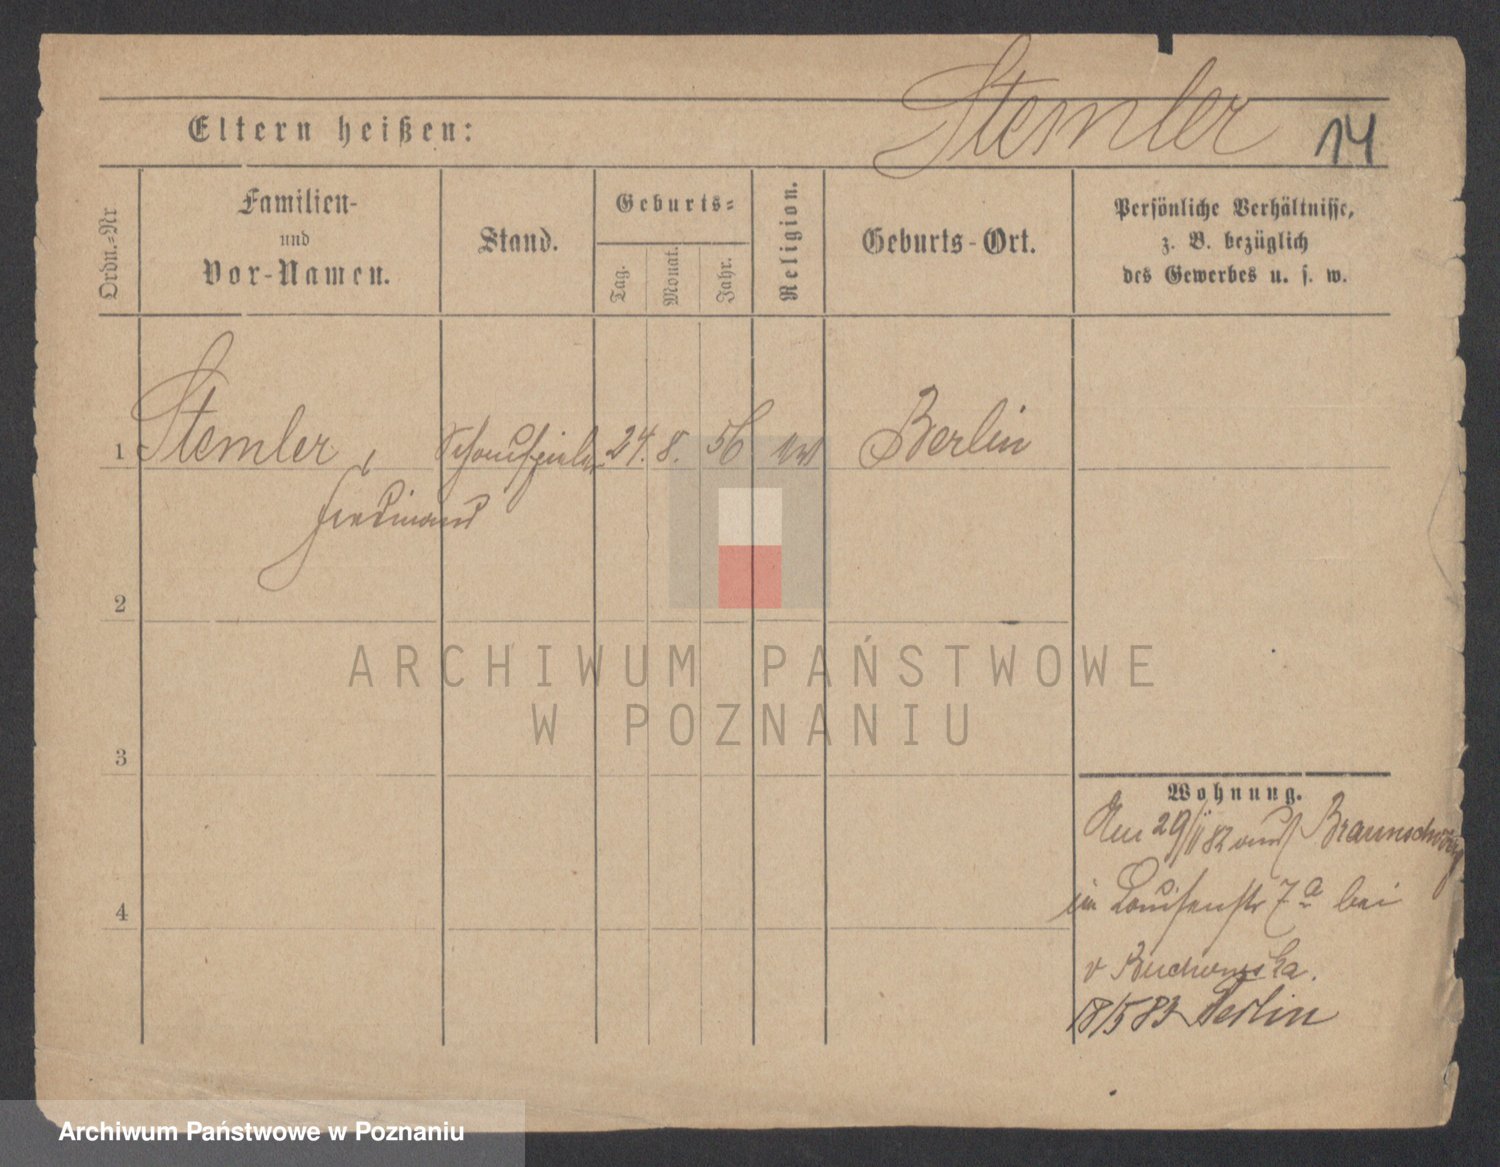 Stemler
14
Eltern heißen:
Ordn.-Nr
Familien-
und
Vor-Namen.
Stand.
Geburts-
Tag.
Monat.
Jahr.
Religion.
Geburts-Ort.
Persönliche Verhältnisse,
z. B. bezüglich
des Gewerbes u. s. w.
1
Stemler, Schauspieler 24. 8. 56 Berlin
Ferdinand
2
3
4
Wohnung.
29/11 82 aus Braunschweig
in Louisenstr 7a bei
v
18/5 83 Berlin
ARCHIWUM PAŃSTWOWE
W POZNANIU
Archiwum Państwowe w Poznaniu